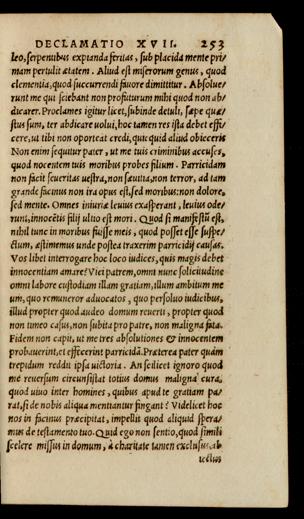 DECLAMATIO XVII. 253
leo, serpentibus expianda feritas, sub placida mente pri/
mam pertulit ætatem. Aliud est miserorum genus, quod
clementia, quod succurrendi fauore dimittitur. Absolue/
runt me qui sciebant non profuturum mihi quod non ab/
dicarer. Proclames igitur licet, subinde detuli, sæpe quæ/
stus sum, ter abdicare uolui, hoc tamen res ista debet effi/
cere, ut tibi non oporteat credi, quicquid aliud obieceris
Non enim sequitur pater, ut me tuis criminibus accuses,
quod nocentem tuis moribus probes filium. Parricidam
non facit seueritas uestra, non sæuitia, non terror, ad tam
grande facinus non ira opus est, sed moribus: non dolore,
sed mente. Omnes iniuriæ leuius exasperant, leuius ode/
runt, innocētis filij ultio est mori. Quod si manifestū est,
nihil tunc in moribus fuisse meis, quod posset esse suspe/
ctum, æstimemus unde postea traxerim parricidij causas.
Vos libet interrogare hoc loco iudices, quis magis debet
innocentiam amare? Vici patrem, omni nunc solicitudine
omni labore custodiam illam gratiam, illum ambitum me
um, quo remuneror aduocatos, quo persoluo iudicibus,
illud propter quod audeo domum reuerti, propter quod
non timeo casus, non subita pro patre, non maligna fata.
Fidem non capit, ut me tres absolutiones & innocentem
probauerint, et effecerint parricidā. Præterea pater quàm
trepidum reddit ipsa uictoria. An scilicet ignoro quod
me reuersum circunsistat totius domus maligna cura,
quod uiuo inter homines, quibus apud te gratiam pa/
rat, si de nobis aliqua mentiantur fingant? Videlicet hoc
nos in facinus præcipitat, impellit quod aliquid spera/
mus de testamento tuo. Quid ego non sentio, quod simili
scelere missus in domum, à charitate tamen exclusus, ab